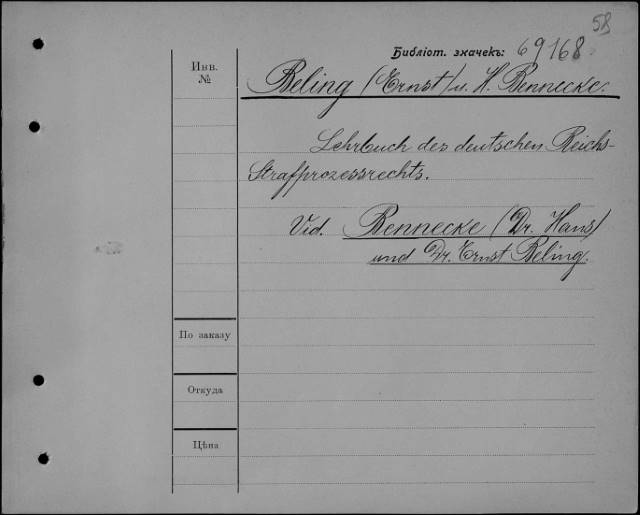 58
Библіот. значекъ: 69168
Инв.
№
Beling (Ernst) u. H. Bennecke.
Lehrbuch des deutschen Reichs-
Strafprozessrechts.
Vid. Bennecke (Dr. Hans)
und Dr. Ernst Beling.
По заказу
Откуда
Цѣна